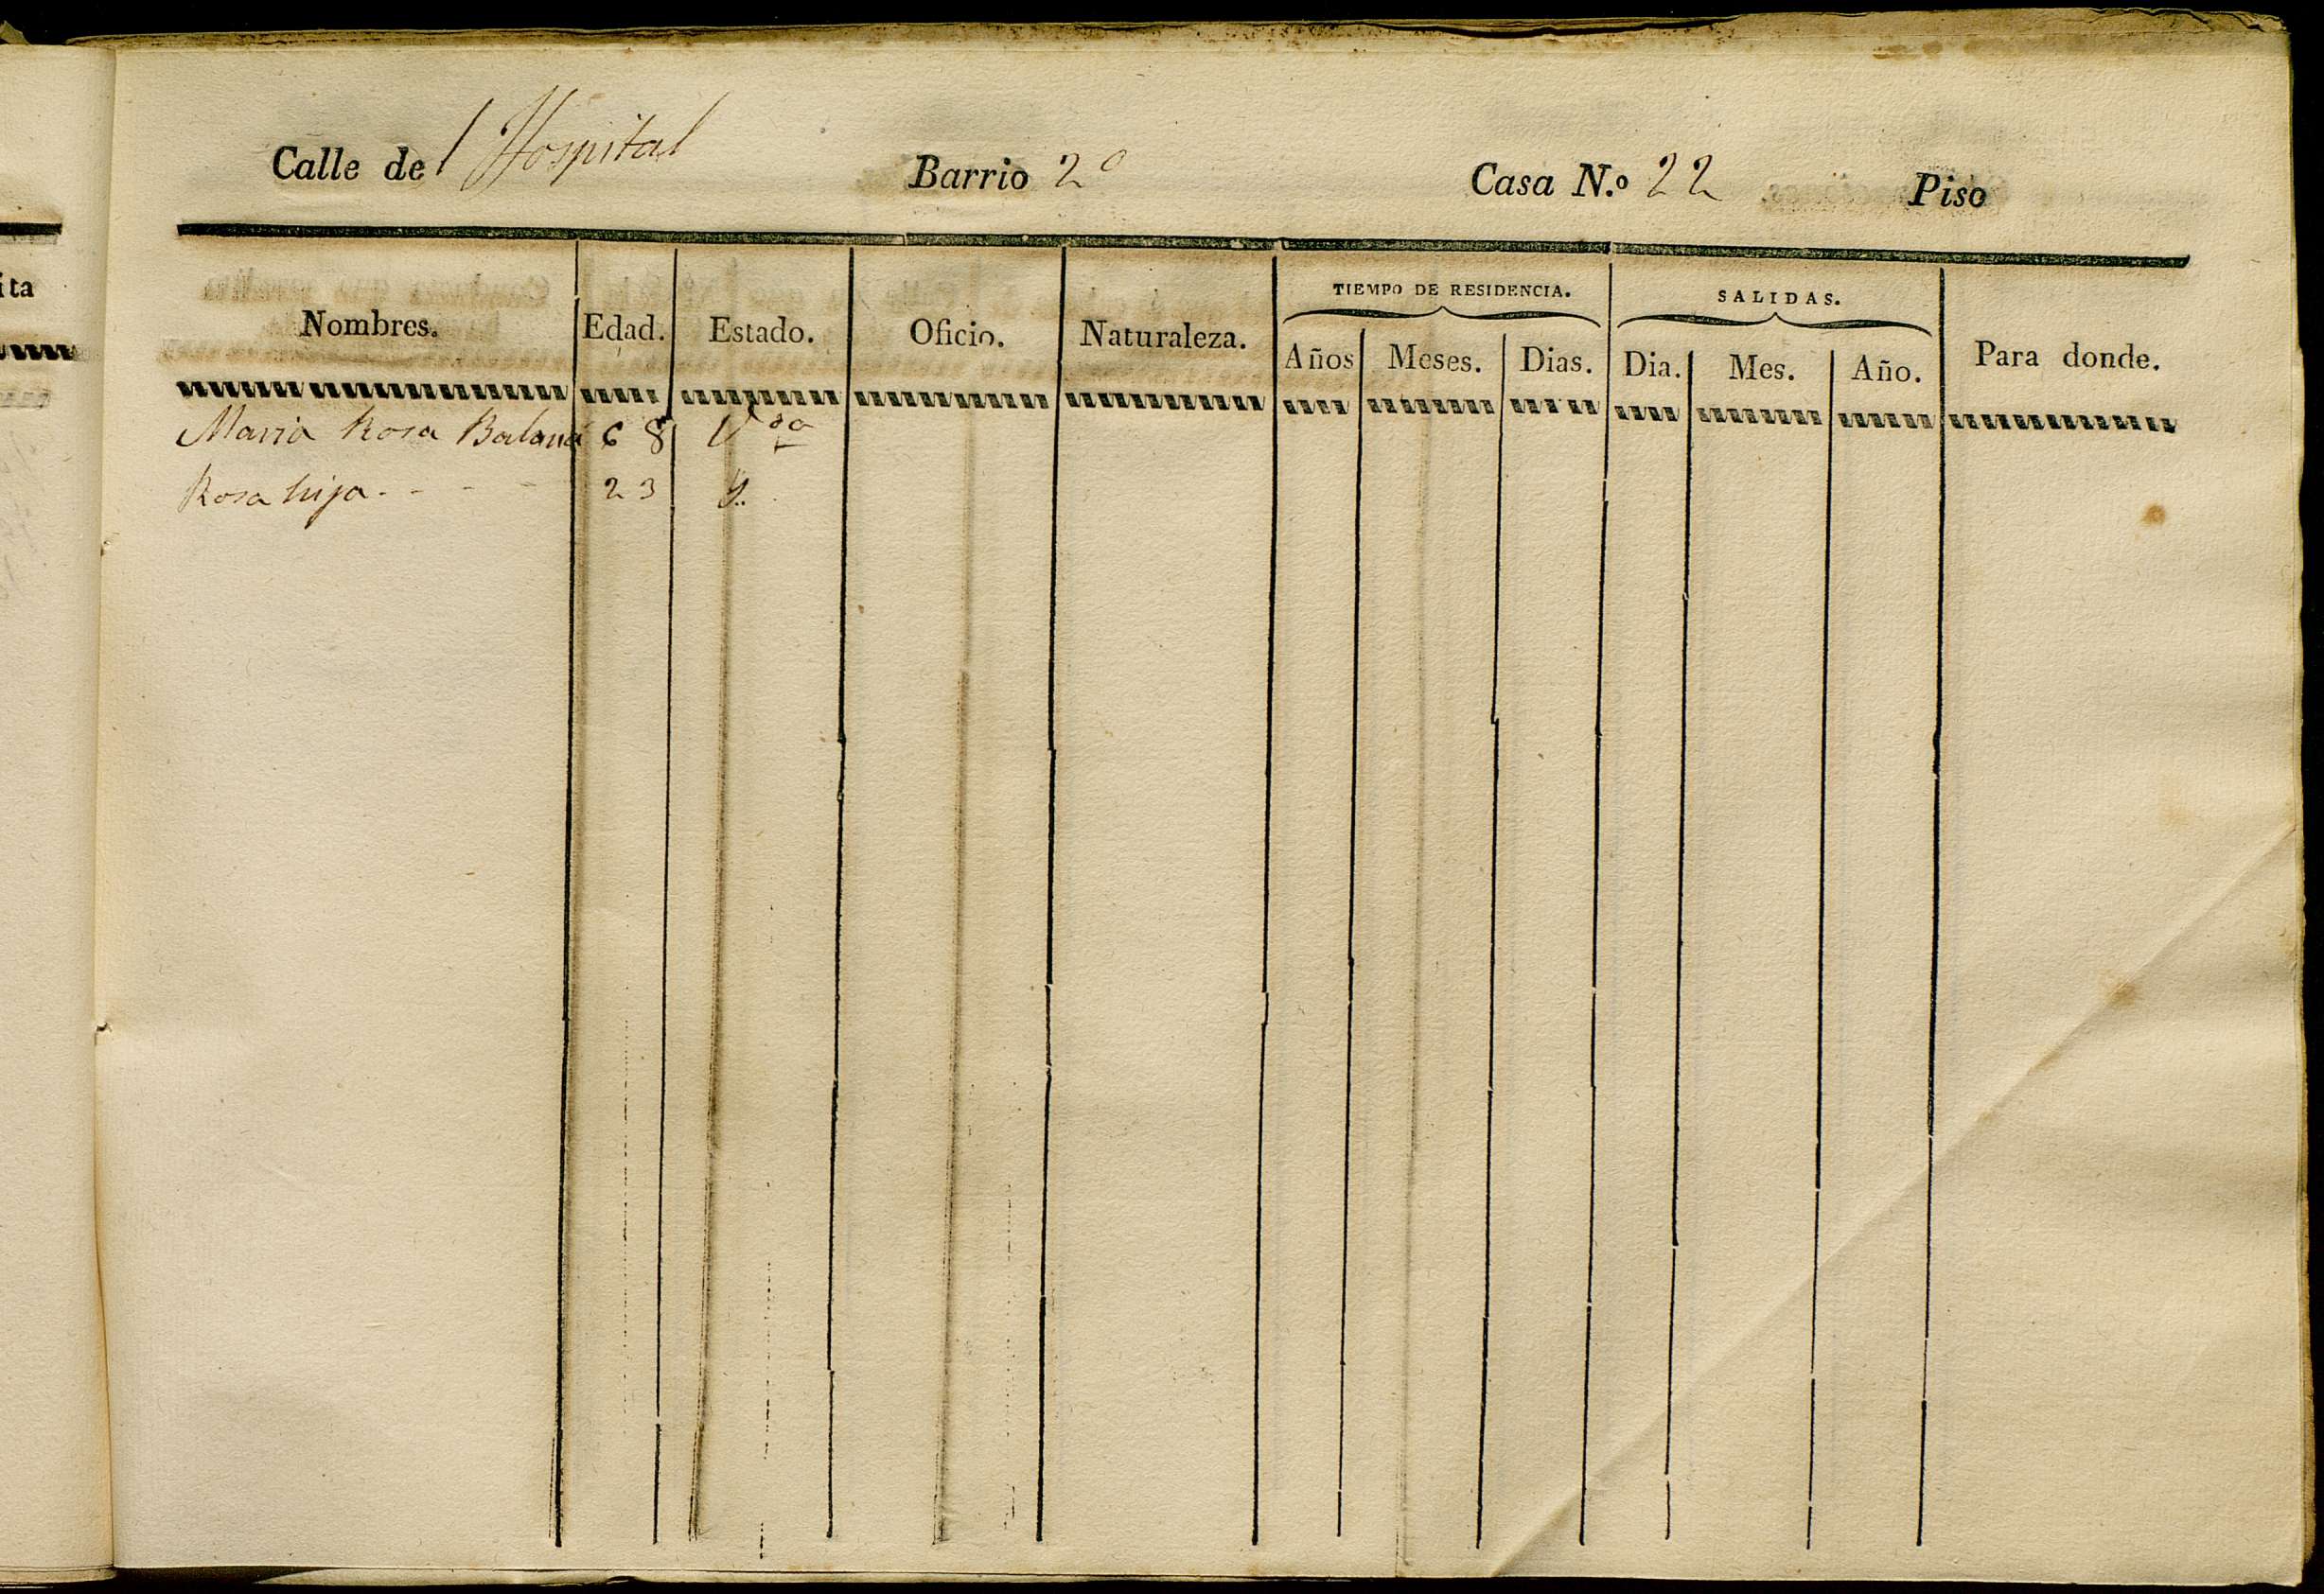 Calle del Hospital Barrio 2º Casa N.º 22 Piso
ita
TIEMPO DE RESIDENCIA. SALIDAS.
Nombres. Edad. Estado. Oficio. Naturaleza. Años Meses. Dias. Dia. Mes. Año. Para donde.
Maria Rosa Balaná 68 Vda
Rosa hija - - - - 23 S.